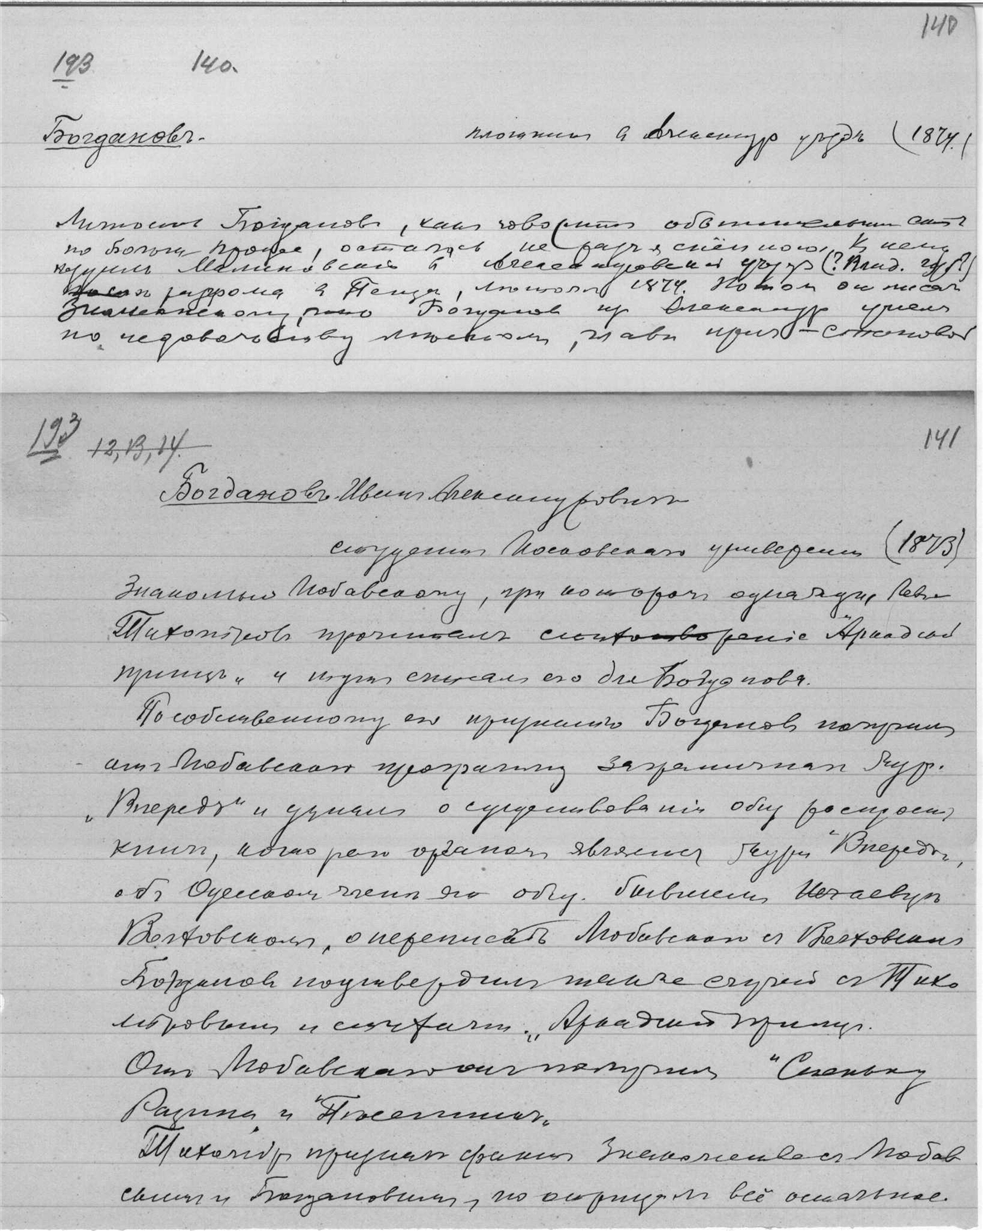 140
193 140.
Богдановъ. плотникъ в Александр уездъ (1874.)
Личность Богданова, какъ говоритъ обвинительный актъ
по Больш. процессе, осталась не разъясненною. К нему
ходилъ Малиновский в Александровский уездъ (? Влад. губ?)
из Пенза, 1874. Потом он писал
Знаменскому, что Богданов из Александр ушелъ
по недовольству, главн прич — становой
193 12, 13, 14. 141
Богдановъ Иванъ Александровичъ
студентъ Московскаго универси (1873)
Знакомый Любавскому, при котором однажды
Тихомиров прочиталъ стихотворение "Аркадский
принцъ" и тутъ списалъ его для Богданова.
По собственному его признанию Богданов получилъ
отъ Любавскаго программу заграничнаго жур.
„Впередъ" и узналъ о существовании общ распростр
книгъ, котораго органом является журн "Впередъ",
объ Одесском члене его общ. бывшемъ Нечаевце
Волховскомъ, о переписке Любавскаго с Волховскимъ
Богданов подтвердилъ также случай съ Тихо
мировымъ и стихами „Аркадский принцъ.
Отъ Любавскаго он получилъ "Стеньку
Разина" и "Песенникъ"
Тихомир призналъ фактъ знакомства съ Любав
скимъ и Богдановымъ, но отрицалъ всё остальное.